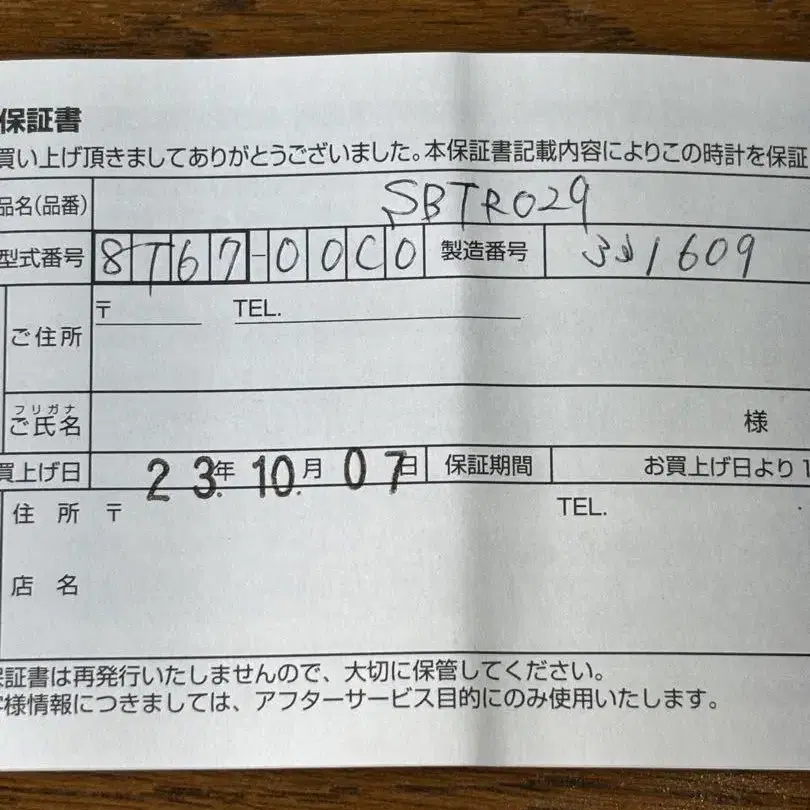 保証書
買い上げ頂きましてありがとうございました。本保証書記載内容によりこの時計を保証
品名(品番) SBTR029
型式番号 8T67-00C0 製造番号 331609
ご住所 〒 TEL.
フリガナ
ご氏名 様
買上げ日 23.年 10.月 07日 保証期間 お買上げ日より1
住所 〒 TEL.
店名
保証書は再発行いたしませんので、大切に保管してください。
客様情報につきましては、アフターサービス目的にのみ使用いたします。